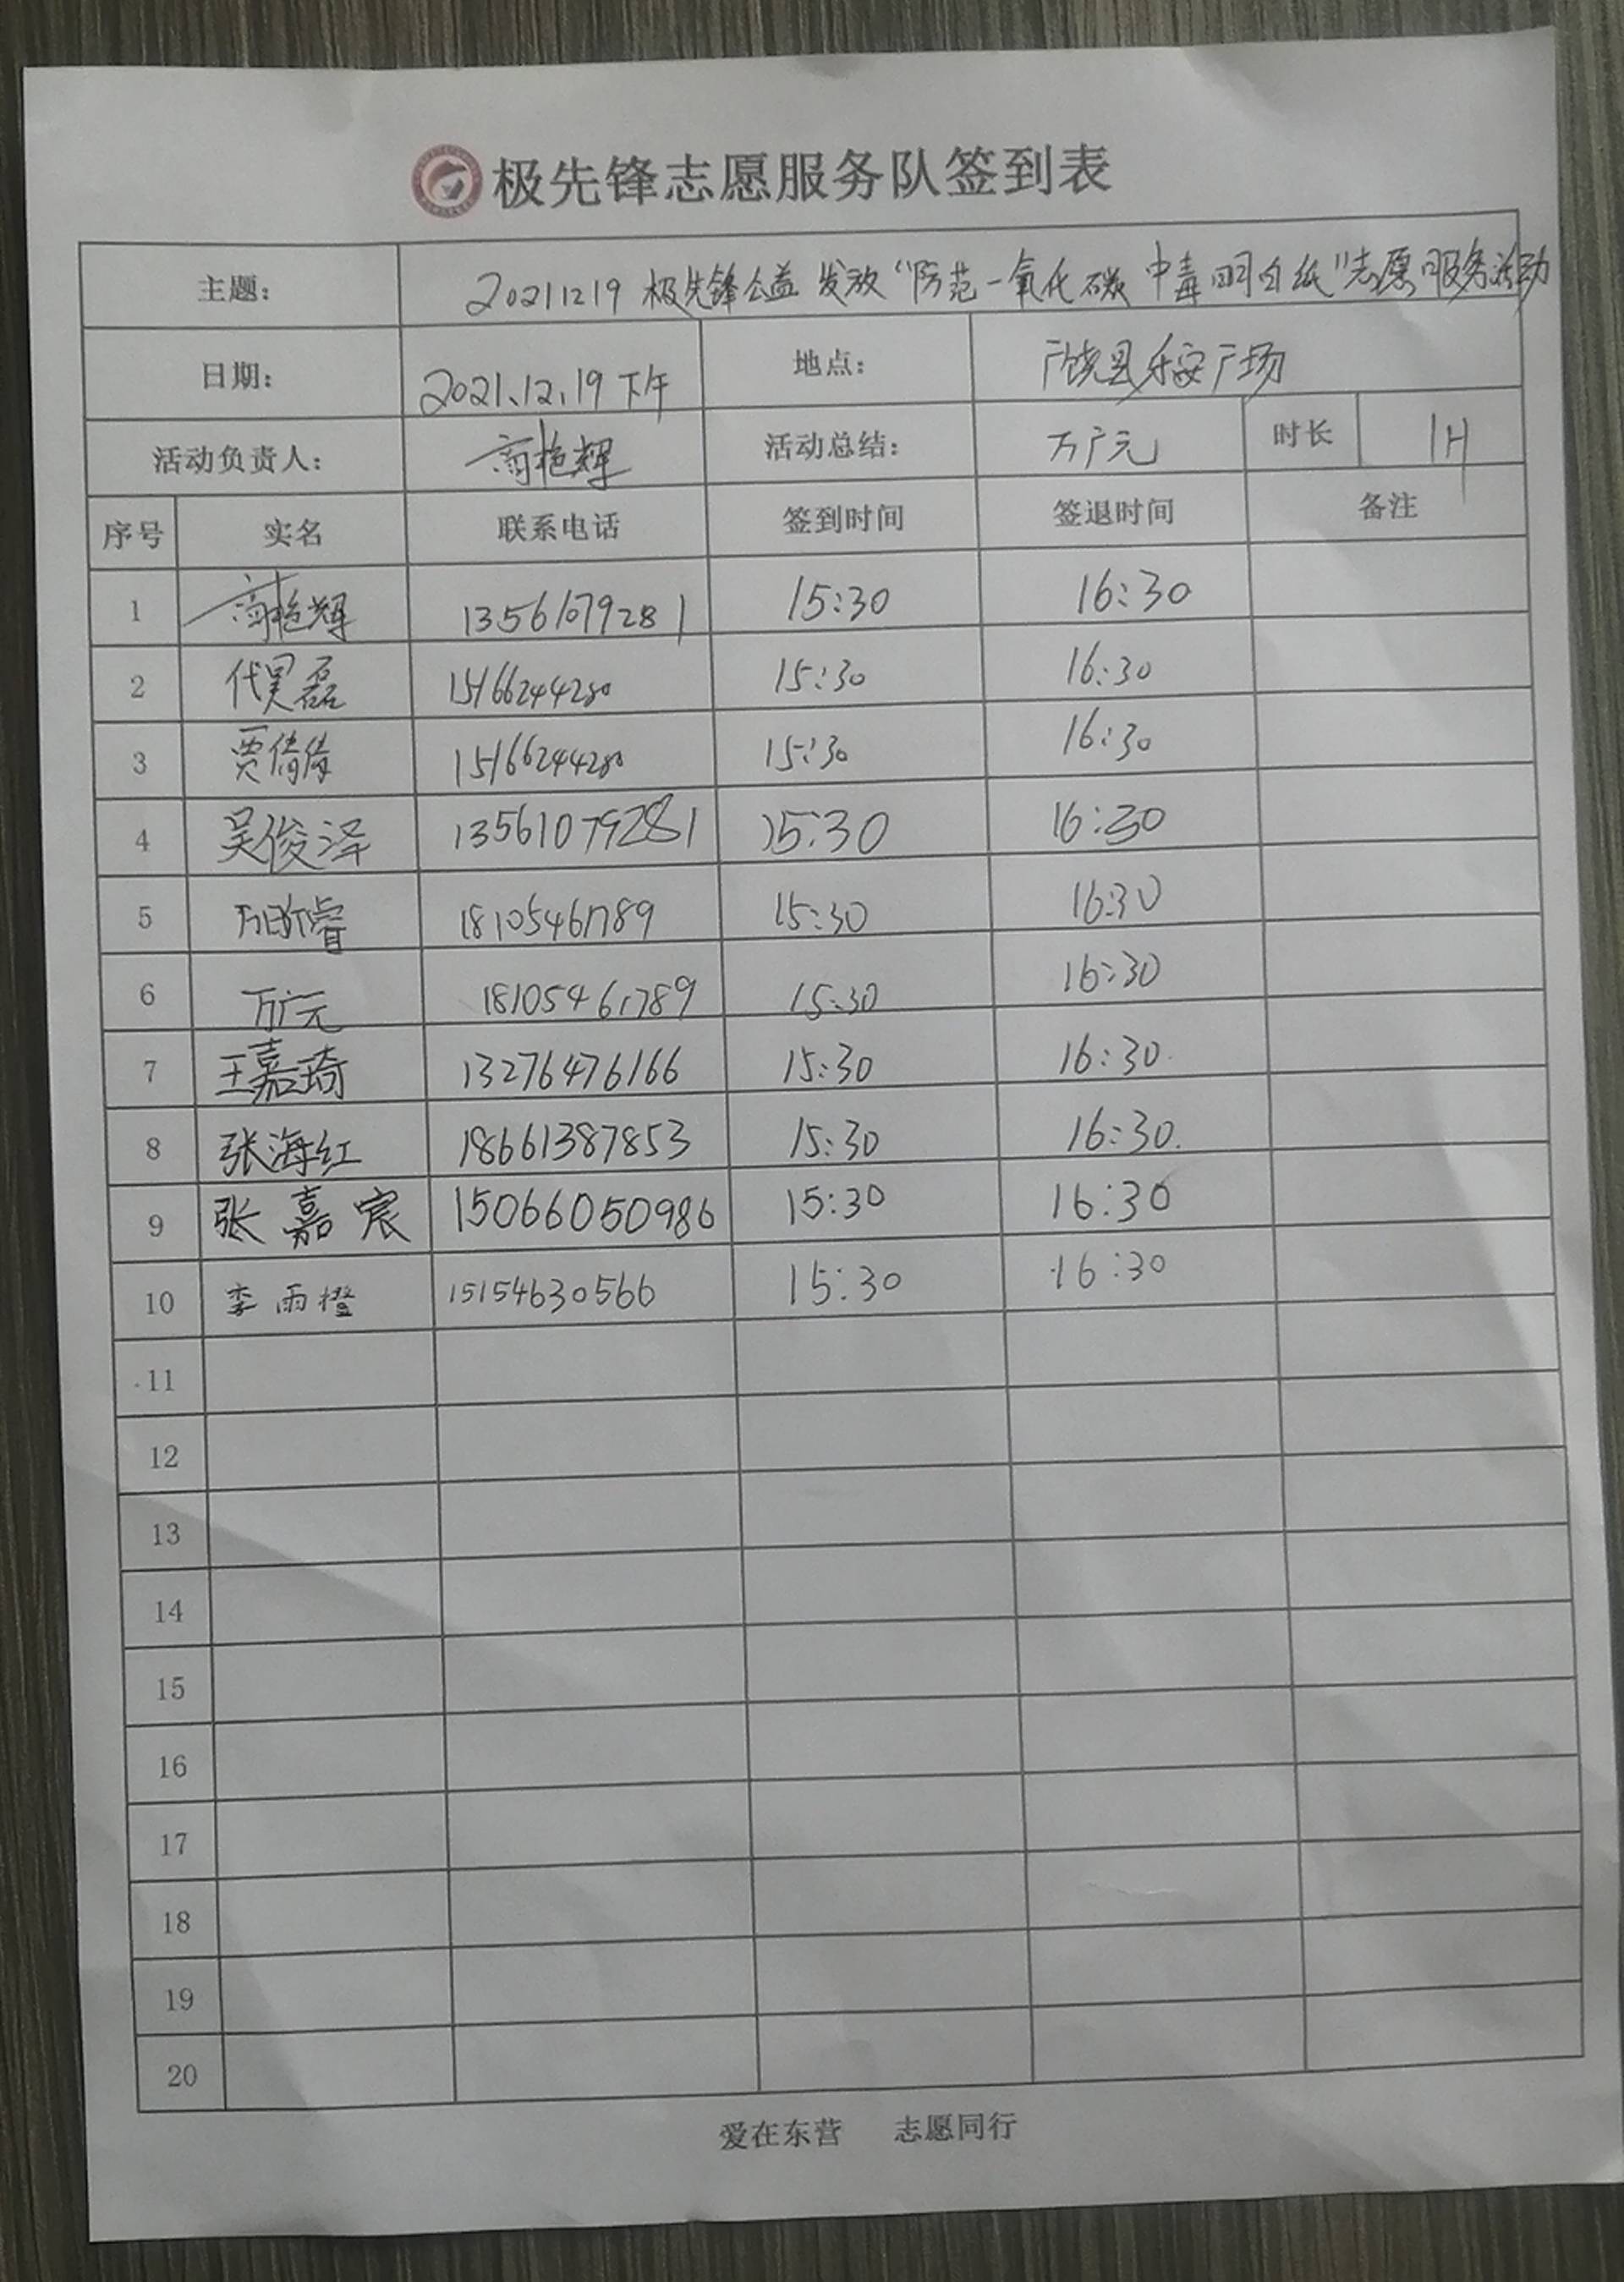 极先锋志愿服务队签到表
主题: 20211219 极先锋公益 发放"防范一氧化碳 中毒明白纸"志愿服务活动
日期: 2021.12.19 下午 地点: 广饶县乐安广场
活动负责人: 高艳辉 活动总结: 万广元 时长 1H
序号 实名 联系电话 签到时间 签退时间 备注
1 高艳辉 13561079281 15:30 16:30
2 代昊磊 15166244280 15:30 16:30
3 贾倩倩 15166244280 15:30 16:30
4 吴俊泽 13561079281 15:30 16:30
5 18105461789 15:30 16:30
6 万广元 18105461789 15:30 16:30
7 王嘉琦 13276476166 15:30 16:30
8 张海红 18661387853 15:30 16:30
9 张嘉宸 15066050986 15:30 16:30
10 李雨橙 15154630566 15:30 16:30
11
12
13
14
15
16
17
18
19
20
爱在东营 志愿同行